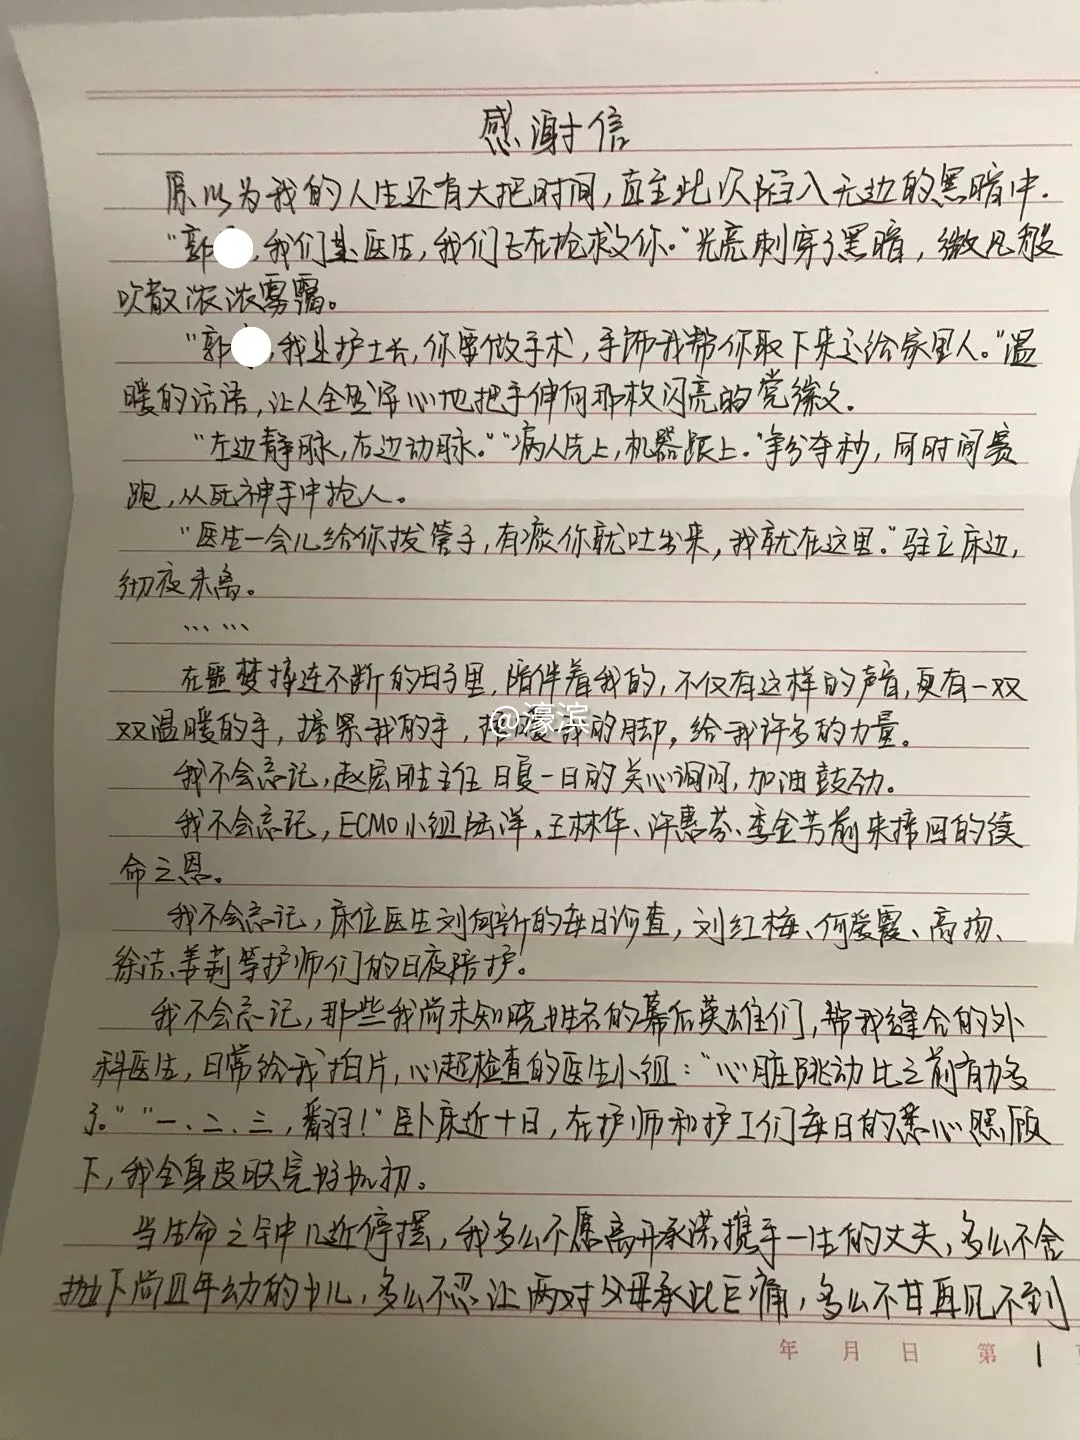 感谢信
原以为我的人生还有大把时间，直至此次陷入无边的黑暗中.
“郭，我们是医生，我们正在抢救你.”光亮刺穿了黑暗，微风般
吹散浓浓雾霭。
“郭，我是护士长，你要做手术，手饰我帮你取下来还给家里人.”温
暖的话语，让人全然安心地把手伸向那枚闪亮的党徽文.
“左边静脉，右边动脉.”“病人先上，机器跟上.”争分夺秒，同时间赛
跑，从死神手中抢人.
“医生一会儿给你拔管子，有痰你就吐出来，我就在这里.”驻立床边，
彻夜未离。
……
在噩梦接连不断的日子里，陪伴着我的，不仅有这样的声音，更有一双
双温暖的手，握紧我的手，我的脚，给我许多的力量。
@濠滨
我不会忘记，赵宏胜主任日复一日的关心询问，加油鼓劲。
我不会忘记，ECMO小组陆洋、王林华、许惠芬、季金芳前来捧回的续
命之恩。
我不会忘记，床位医生刘向新的每日诊查，刘红梅、何爱霞、高扬、
徐洁、姜莉等护师们的日夜陪护。
我不会忘记，那些我尚未知晓姓名的幕后英雄们，帮我缝合的外
科医生，日常给我拍片，心超检查的医生小组：“心脏跳动比之前有力多
了.”“一、二、三，翻身！”卧床近十日，在护师和护工们每日的悉心照顾
下，我全身皮肤完好如初。
当生命之钟几近停摆，我多么不愿离开承诺携手一生的丈夫，多么不舍
抛下尚且年幼的女儿，多么不忍让两对父母承此巨痛，多么不甘再见不到
年 月 日 第 1